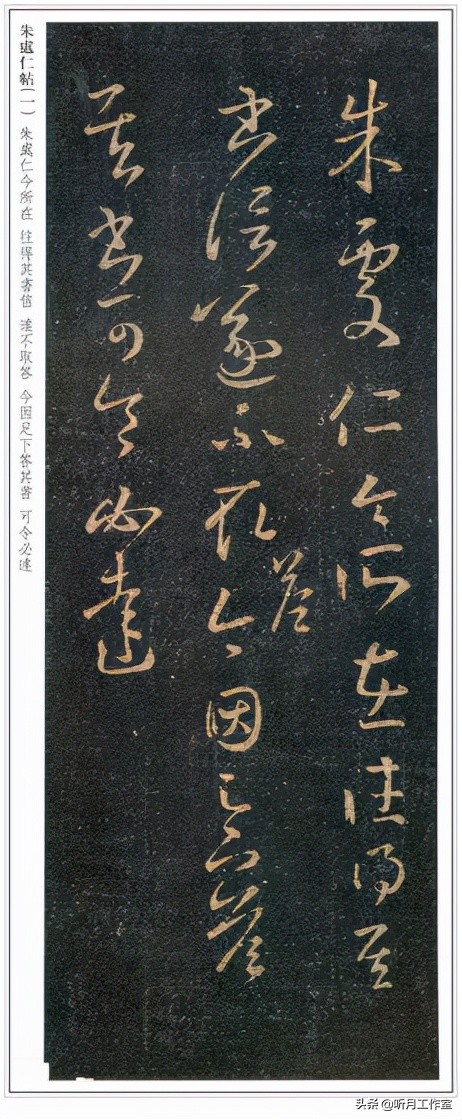 朱處仁今所在往得其
書信遂不取答今因足下答
其書可令必達
朱處仁帖(一) 朱處仁今所在 往得其書信 遂不取答 今因足下答其書 可令必達
头条 @听月工作室